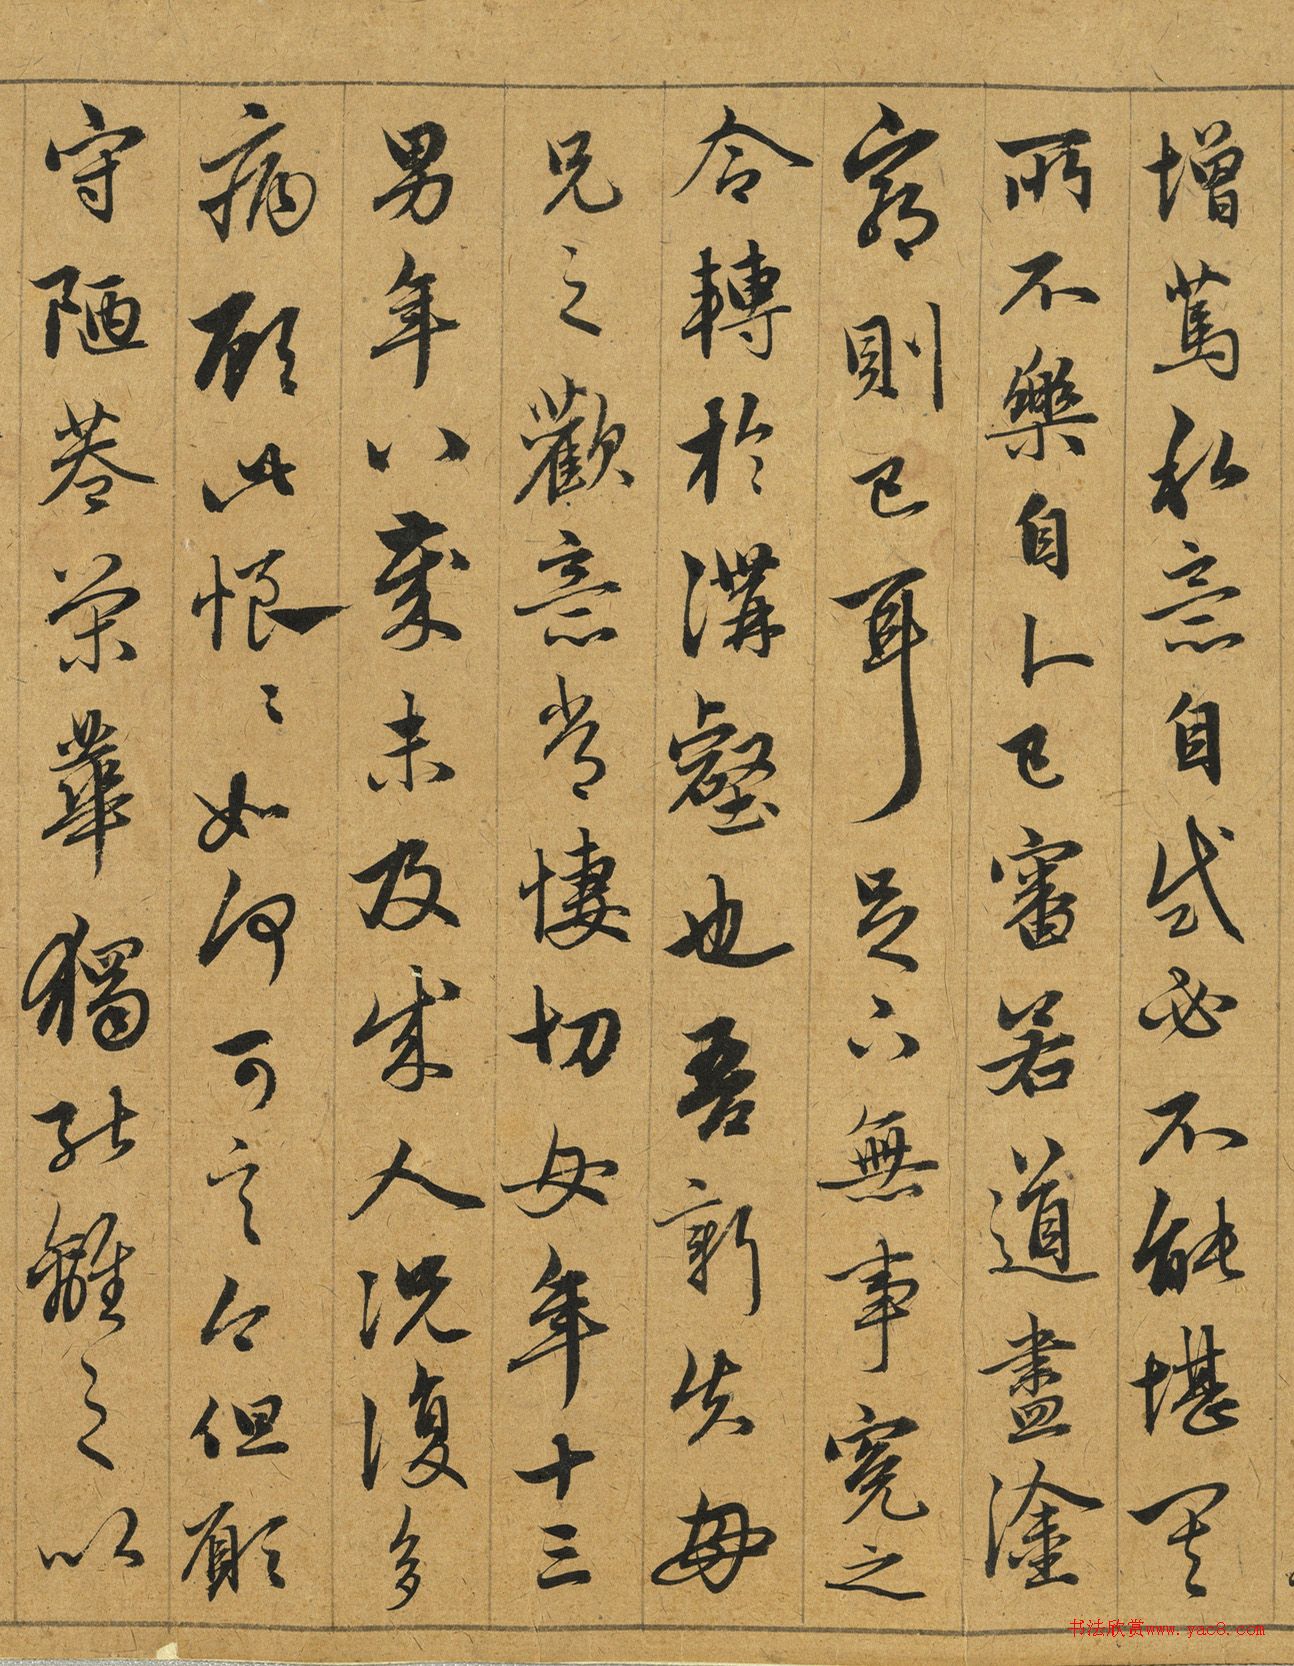 增篤私意自試必不能堪其
所不樂自卜已審若道盡塗
窮則已耳足下無事冤之
令轉於溝壑也吾新失母
兄之歡意常悽切女年十三
男年八歲未及成人況復多
病顧此恨〻如何可言今但願
守陋巷榮華獨能離之以
书法欣赏www.yac8.com